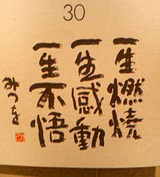 30
一生燃焼
一生感動
一生不悟
みつを